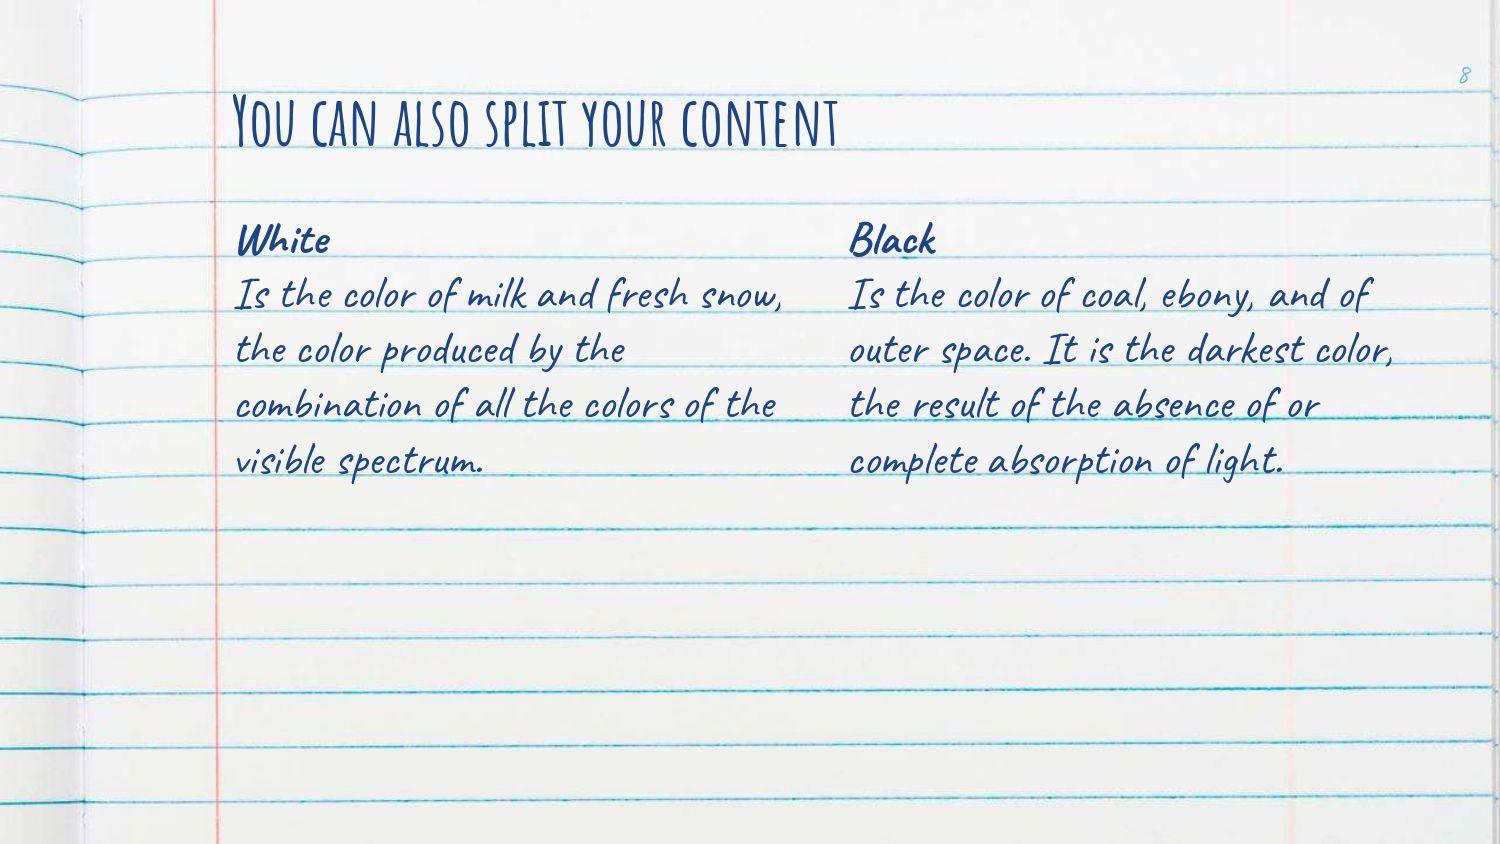 8
You can also split your content
White
Is the color of milk and fresh snow,
the color produced by the
combination of all the colors of the
visible spectrum.
Black
Is the color of coal, ebony, and of
outer space. It is the darkest color,
the result of the absence of or
complete absorption of light.